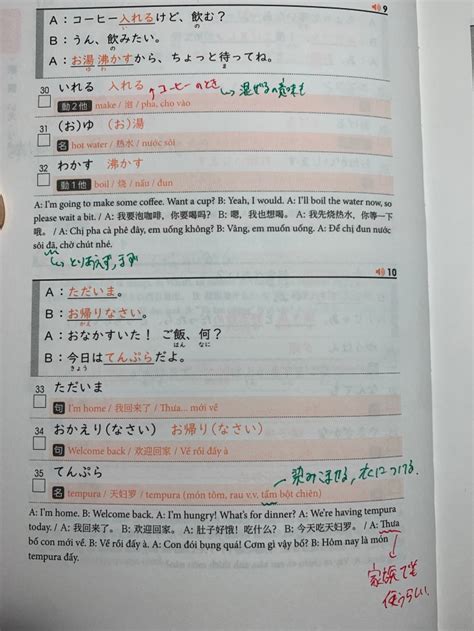 9
A：コーヒー入れるけど、飲む？
B：うん、飲みたい。
A：お湯沸かすから、ちょっと待ってね。
30 いれる 入れる ↑コーヒーのとき 混ぜるの意味も
動2他 make / 泡 / pha, cho vào
31 (お)ゆ (お)湯
名 hot water / 热水 / nước sôi
32 わかす 沸かす
動1他 boil / 烧 / nấu / đun
A: I'm going to make some coffee. Want a cup? B: Yeah, I would. A: I'll boil the water now, so
please wait a bit. / A: 我要泡咖啡，你要喝吗？ B: 嗯，我也想喝。 A: 我先烧热水，你等一下
哦。 / A: Chị pha cà phê đây, em uống không? B: Vâng, em muốn uống. A: Để chị đun nước
sôi đã, chờ chút nhé.
とりあえず、まず
10
A：ただいま。
B：お帰りなさい。
A：おなかすいた！ ご飯、何？
B：今日はてんぷらだよ。
33 ただいま
句 I'm home / 我回来了 / Thưa... mới về
34 おかえり(なさい) お帰り(なさい)
句 Welcome back / 欢迎回家 / Về rồi đấy à
35 てんぷら
染みこませる,衣につける
名 tempura / 天妇罗 / tempura (món tôm, rau v.v. tẩm bột chiên)
A: I'm home. B: Welcome back. A: I'm hungry! What's for dinner? A: We're having tempura
today. / A: 我回来了。 B: 欢迎回家。 A: 肚子好饿！吃什么？ B: 今天吃天妇罗。 / A: Thưa
bố con mới về. B: Về rồi đấy à. A: Con đói bụng quá! Cơm gì vậy bố? B: Hôm nay là món
tempura đấy.
家族でも
使うらしい.